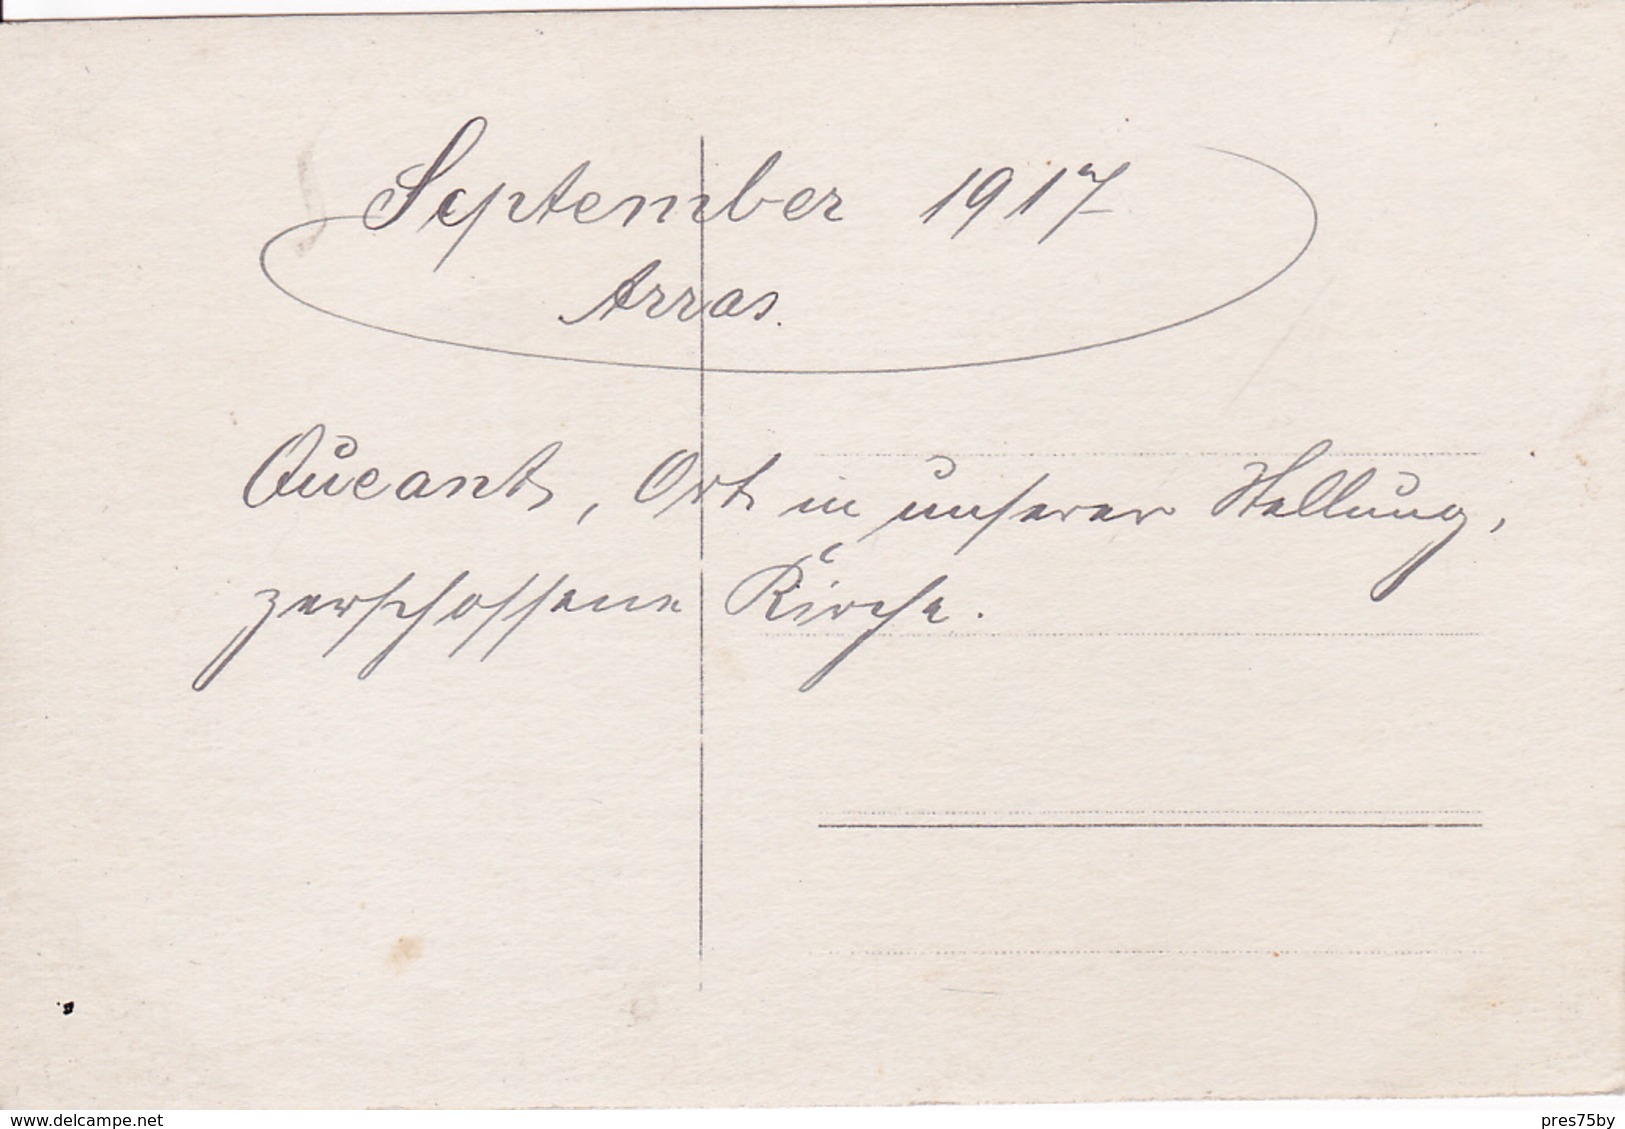 September 1917
Arras.
Queant, Ort in unserer Stellung,
zerschossene Kirche.
www.delcampe.net
pres75by